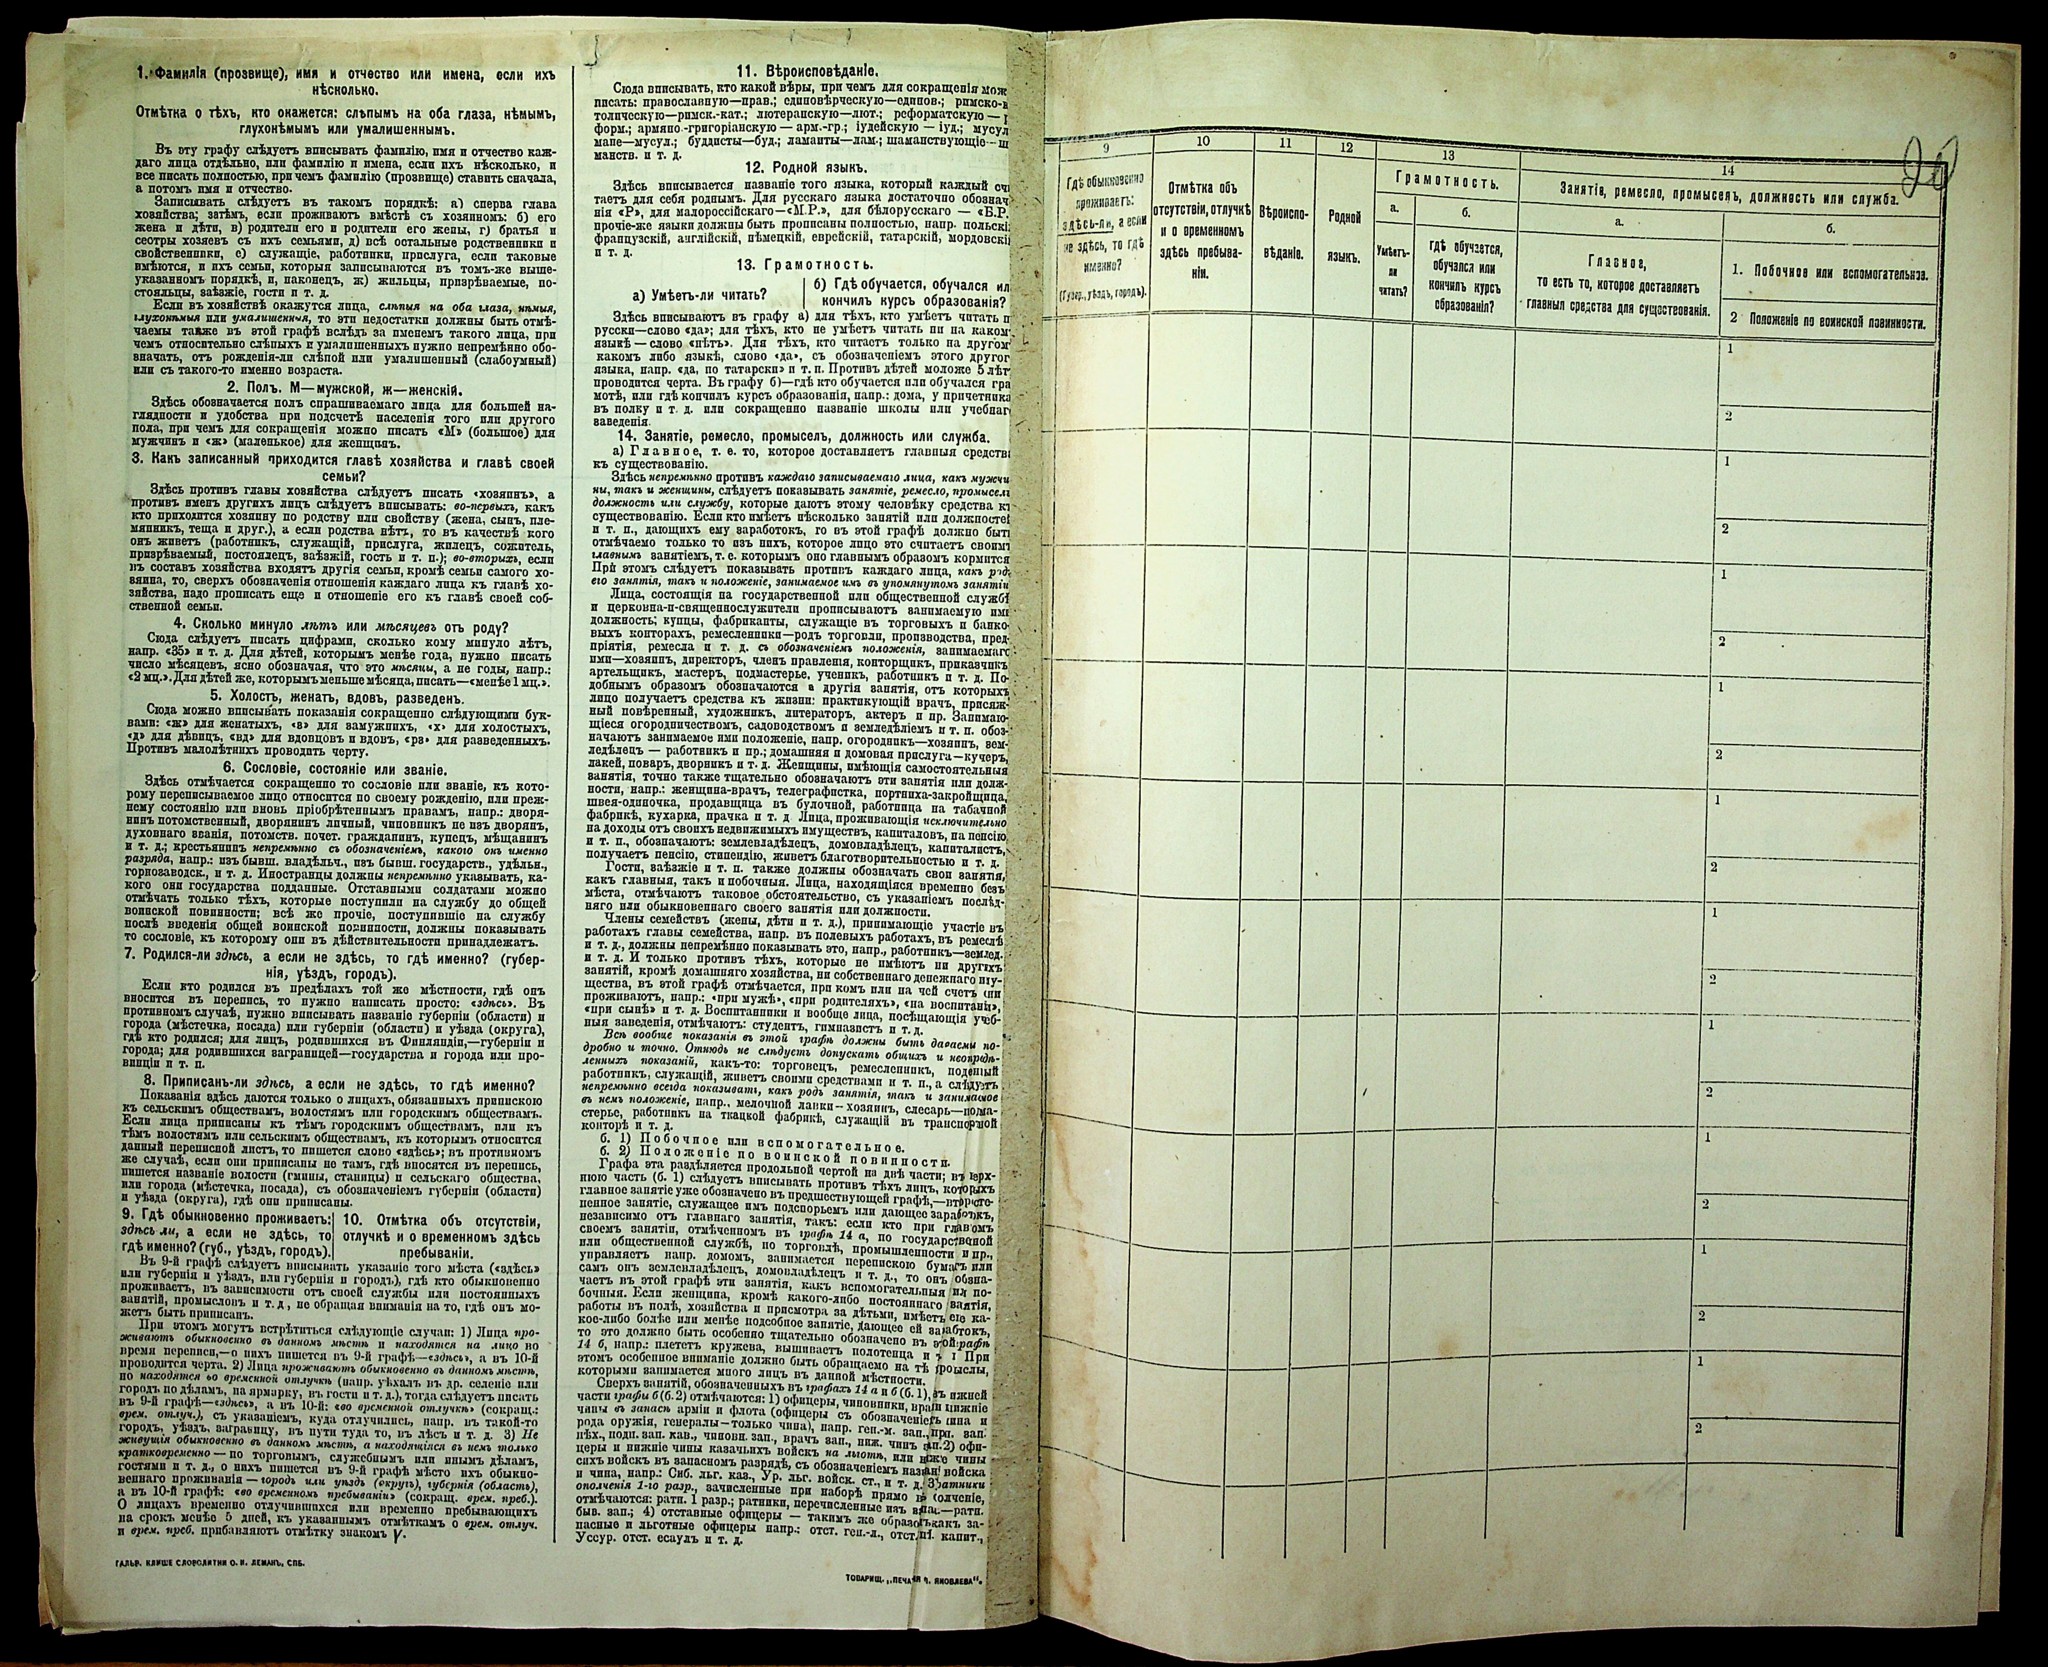 1. Фамилія (прозвище), имя и отчество или имена, если ихъ
нѣсколько.
Отмѣтка о тѣхъ, кто окажется: слѣпымъ на оба глаза, нѣмымъ,
глухонѣмымъ или умалишеннымъ.
Въ эту графу слѣдуетъ вписывать фамилію, имя и отчество каж-
даго лица отдѣльно, или фамилію и имена, если ихъ нѣсколько, и
все писать полностью, при чемъ фамилію (прозвище) ставить сначала,
а потомъ имя и отчество.
Записывать слѣдуетъ въ такомъ порядкѣ: а) сперва глава
хозяйства; затѣмъ, если проживаютъ вмѣстѣ съ хозяиномъ: б) его
жена и дѣти, в) родители его и родители его жены, г) братья и
сестры хозяевъ съ ихъ семьями, д) всѣ остальные родственники и
свойственники, е) служащіе, работники, прислуга, если таковые
имѣются, и ихъ семьи, которыя записываются въ томъ-же выше-
указанномъ порядкѣ, и, наконецъ, ж) жильцы, призрѣваемые, по-
стояльцы, заѣзжіе, гости и т. д.
Если въ хозяйствѣ окажутся лица, слѣпыя на оба глаза, нѣмыя,
глухонѣмыя или умалишенныя, то эти недостатки должны быть отмѣ-
чаемы также въ этой графѣ вслѣдъ за именемъ такого лица, при
чемъ относительно слѣпыхъ и умалишенныхъ нужно непремѣнно обо-
значать, отъ рожденія-ли слѣпой или умалишенный (слабоумный)
или съ такого-то именно возраста.
2. Полъ. М—мужской, ж—женскій.
Здѣсь обозначается полъ спрашиваемаго лица для большей на-
глядности и удобства при подсчетѣ населенія того или другого
пола, при чемъ для сокращенія можно писать «М» (большое) для
мужчинъ и «ж» (маленькое) для женщинъ.
3. Какъ записанный приходится главѣ хозяйства и главѣ своей
семьи?
Здѣсь противъ главы хозяйства слѣдуетъ писать «хозяинъ», а
противъ именъ другихъ лицъ слѣдуетъ вписывать: во-первыхъ, какъ
кто приходится хозяину по родству или свойству (жена, сынъ, пле-
мянникъ, теща и друг.), а если родства нѣтъ, то въ качествѣ кого
онъ живетъ (работникъ, служащій, прислуга, жилецъ, сожитель,
призрѣваемый, постоялецъ, заѣзжій, гость и т. п.); во-вторыхъ, если
въ составъ хозяйства входятъ другія семьи, кромѣ семьи самого хо-
зяина, то, сверхъ обозначенія отношенія каждаго лица къ главѣ хо-
зяйства, надо прописать еще и отношеніе его къ главѣ своей соб-
ственной семьи.
4. Сколько минуло лѣтъ или мѣсяцевъ отъ роду?
Сюда слѣдуетъ писать цифрами, сколько кому минуло лѣтъ,
напр. «35» и т. д. Для дѣтей, которымъ менѣе года, нужно писать
число мѣсяцевъ, ясно обозначая, что это мѣсяцы, а не годы, напр.:
«2 мц.». Для дѣтей же, которымъ меньше мѣсяца, писать—«менѣе 1 мц.».
5. Холостъ, женатъ, вдовъ, разведенъ.
Сюда можно вписывать показанія сокращенно слѣдующими бук-
вами: «ж» для женатыхъ, «з» для замужнихъ, «х» для холостыхъ,
«д» для дѣвицъ, «вд» для вдовцовъ и вдовъ, «рз» для разведенныхъ.
Противъ малолѣтнихъ проводить черту.
6. Сословіе, состояніе или званіе.
Здѣсь отмѣчается сокращенно то сословіе или званіе, къ кото-
рому переписываемое лицо относится по своему рожденію, или преж-
нему состоянію или вновь пріобрѣтеннымъ правамъ, напр.: дворя-
нинъ потомственный, дворянинъ личный, чиновникъ не изъ дворянъ,
духовнаго званія, потомств. почет. гражданинъ, купецъ, мѣщанинъ
и т. д.; крестьянинъ непремѣнно съ обозначеніемъ, какого онъ именно
разряда, напр.: изъ бывш. владѣльч., изъ бывш. государств., удѣльн.,
горнозаводск., и т. д. Иностранцы должны непремѣнно указывать, ка-
кого они государства подданные. Отставными солдатами можно
отмѣчать только тѣхъ, которые поступили на службу до общей
воинской повинности; всѣ же прочіе, поступившіе на службу
послѣ введенія общей воинской повинности, должны показывать
то сословіе, къ которому они въ дѣйствительности принадлежатъ.
7. Родился-ли здѣсь, а если не здѣсь, то гдѣ именно? (губер-
нія, уѣздъ, городъ).
Если кто родился въ предѣлахъ той же мѣстности, гдѣ онъ
вносится въ перепись, то нужно написать просто: «здѣсь». Въ
противномъ случаѣ, нужно вписывать названіе губерніи (области) и
города (мѣстечка, посада) или губерніи (области) и уѣзда (округа),
гдѣ кто родился; для лицъ, родившихся въ Финляндіи,—губерніи и
города; для родившихся заграницей—государства и города или про-
винціи и т. п.
8. Приписанъ-ли здѣсь, а если не здѣсь, то гдѣ именно?
Показанія здѣсь даются только о лицахъ, обязанныхъ припискою
къ сельскимъ обществамъ, волостямъ или городскимъ обществамъ.
Если лица приписаны къ тѣмъ городскимъ обществамъ, или къ
тѣмъ волостямъ или сельскимъ обществамъ, къ которымъ относится
данный переписной листъ, то пишется слово «здѣсь»; въ противномъ
же случаѣ, если они приписаны не тамъ, гдѣ вносятся въ перепись,
пишется названіе волости (гмины, станицы) и сельскаго общества,
или города (мѣстечка, посада), съ обозначеніемъ губерніи (области)
и уѣзда (округа), гдѣ они приписаны.
9. Гдѣ обыкновенно проживаетъ:
здѣсь ли, а если не здѣсь, то
гдѣ именно? (губ., уѣздъ, городъ).
10. Отмѣтка объ отсутствіи,
отлучкѣ и о временномъ здѣсь
пребываніи.
Въ 9-й графѣ слѣдуетъ вписывать указаніе того мѣста («здѣсь»
или губернія и уѣздъ, или губернія и городъ), гдѣ кто обыкновенно
проживаетъ, въ зависимости отъ своей службы или постоянныхъ
занятій, промысловъ и т. д., не обращая вниманія на то, гдѣ онъ мо-
жетъ быть приписанъ.
При этомъ могутъ встрѣтиться слѣдующіе случаи: 1) Лица про-
живаютъ обыкновенно въ данномъ мѣстѣ и находятся на лицо во
время переписи,—о нихъ пишется въ 9-й графѣ—«здѣсь», а въ 10-й
проводится черта. 2) Лица проживаютъ обыкновенно въ данномъ мѣстѣ,
но находятся во временной отлучкѣ (напр. уѣхалъ въ др. селеніе или
городъ по дѣламъ, на ярмарку, въ гости и т. д.), тогда слѣдуетъ писать
въ 9-й графѣ—«здѣсь», а въ 10-й: «во временной отлучкѣ» (сокращ.:
врем. отлуч.), съ указаніемъ, куда отлучились, напр. въ такой-то
городъ, уѣздъ, заграницу, въ пути туда то, въ лѣсъ и т. д. 3) Не
живущія обыкновенно въ данномъ мѣстѣ, а находящіяся въ немъ только
кратковременно—по торговымъ, служебнымъ или инымъ дѣламъ,
гостями и т. д., о нихъ пишется въ 9-й графѣ мѣсто ихъ обыкно-
веннаго проживанія—городъ или уѣздъ (округъ), губернія (область),
а въ 10-й графѣ: «во временномъ пребываніи» (сокращ. врем. преб.).
О лицахъ временно отлучившихся или временно пребывающихъ
на срокъ менѣе 5 дней, къ указаннымъ отмѣткамъ о врем. отлуч.
и врем. преб. прибавляютъ отмѣтку знакомъ V.
ГАЛЬВ. КЛИШЕ СЛОВОЛИТНИ О. И. ЛЕМАНЪ, СПБ.
11. Вѣроисповѣданіе.
Сюда вписывать, кто какой вѣры, при чемъ для сокращенія мож
писать: православную—прав.; единовѣрческую—единов.; римско-к
толическую—римск.-кат.; лютеранскую—лют.; реформатскую—р
форм.; армяно-григоріанскую—арм.-гр.; іудейскую—іуд.; мусул
мане—мусул.; буддисты—буд.; ламаиты—лам.; шаманствующіе—ш
манств. и т. д.
12. Родной языкъ.
Здѣсь вписывается названіе того языка, который каждый счи
таетъ для себя роднымъ. Для русскаго языка достаточно обознач
нія «Р», для малороссійскаго—«М.Р.», для бѣлорусскаго—«Б.Р.
прочіе-же языки должны быть прописаны полностью, напр. польскі
французскій, англійскій, нѣмецкій, еврейскій, татарскій, мордовскі
и т. д.
13. Грамотность.
а) Умѣетъ-ли читать?
б) Гдѣ обучается, обучался ил
кончилъ курсъ образованія?
Здѣсь вписываютъ въ графу а) для тѣхъ, кто умѣетъ читать п
русски—слово «да»; для тѣхъ, кто не умѣетъ читать ни на каком
языкѣ—слово «нѣтъ». Для тѣхъ, кто читаетъ только на другом
какомъ либо языкѣ, слово «да», съ обозначеніемъ этого другог
языка, напр. «да, по татарски» и т. п. Противъ дѣтей моложе 5 лѣт
проводится черта. Въ графу б)—гдѣ кто обучается или обучался гра
мотѣ, или гдѣ кончилъ курсъ образованія, напр.: дома, у причетника
въ полку и т. д. или сокращенно названіе школы или учебнаг
заведенія.
14. Занятіе, ремесло, промыселъ, должность или служба.
а) Главное, т. е. то, которое доставляетъ главныя средств
къ существованію.
Здѣсь непремѣнно противъ каждаго записываемаго лица, какъ мужчи
ны, такъ и женщины, слѣдуетъ показывать занятіе, ремесло, промысел
должность или службу, которые даютъ этому человѣку средства к
существованію. Если кто имѣетъ нѣсколько занятій или должносте
и т. п., дающихъ ему заработокъ, то въ этой графѣ должно быт
отмѣчаемо только то изъ нихъ, которое лицо это считаетъ своим
главнымъ занятіемъ, т. е. которымъ оно главнымъ образомъ кормится
При этомъ слѣдуетъ показывать противъ каждаго лица, какъ род
его занятія, такъ и положеніе, занимаемое имъ въ упомянутомъ занятіи
Лица, состоящія на государственной или общественной служб
и церковно-и-священнослужители прописываютъ занимаемую ими
должность; купцы, фабриканты, служащіе въ торговыхъ и банко-
выхъ конторахъ, ремесленники—родъ торговли, производства, пред-
пріятія, ремесла и т. д. съ обозначеніемъ положенія, занимаемаго
ими—хозяинъ, директоръ, членъ правленія, конторщикъ, приказчикъ
артельщикъ, мастеръ, подмастерье, ученикъ, работникъ и т. д. По-
добнымъ образомъ обозначаются и другія занятія, отъ которыхъ
лицо получаетъ средства къ жизни: практикующій врачъ, присяж-
ный повѣренный, художникъ, литераторъ, актеръ и пр. Занимаю-
щіеся огородничествомъ, садоводствомъ и земледѣліемъ и т. п. обоз-
начаютъ занимаемое ими положеніе, напр. огородникъ—хозяинъ, зем-
ледѣлецъ—работникъ и пр.; домашняя и домовая прислуга—кучеръ,
лакей, поваръ, дворникъ и т. д. Женщины, имѣющія самостоятельныя
занятія, точно также тщательно обозначаютъ эти занятія или долж-
ности, напр.: женщина-врачъ, телеграфистка, портниха-закройщица,
швея-одиночка, продавщица въ булочной, работница на табачной
фабрикѣ, кухарка, прачка и т. д. Лица, проживающія исключительно
на доходы отъ своихъ недвижимыхъ имуществъ, капиталовъ, на пенсію
и т. п., обозначаютъ: землевладѣлецъ, домовладѣлецъ, капиталистъ,
получаетъ пенсію, стипендію, живетъ благотворительностью и т. д.
Гости, заѣзжіе и т. п. также должны обозначать свои занятія,
какъ главныя, такъ и побочныя. Лица, находящіяся временно безъ
мѣста, отмѣчаютъ таковое обстоятельство, съ указаніемъ послѣд-
няго или обыкновеннаго своего занятія или должности.
Члены семействъ (жены, дѣти и т. д.), принимающіе участіе въ
работахъ главы семейства, напр. въ полевыхъ работахъ, въ ремеслѣ
и т. д., должны непремѣнно показывать это, напр., работникъ—землед.
и т. д. И только противъ тѣхъ, которые не имѣютъ ни другихъ
занятій, кромѣ домашняго хозяйства, ни собственнаго денежнаго иму-
щества, въ этой графѣ отмѣчается, при комъ или на чей счетъ они
проживаютъ, напр.: «при мужѣ», «при родителяхъ», «на воспитаніи»,
«при сынѣ» и т. д. Воспитанники и вообще лица, посѣщающія учеб-
ныя заведенія, отмѣчаютъ: студентъ, гимназистъ и т. д.
Всѣ вообще показанія въ этой графѣ должны быть даваемы по-
дробно и точно. Отнюдь не слѣдуетъ допускать общихъ и неопредѣ-
ленныхъ показаній, какъ-то: торговецъ, ремесленникъ, поденный
работникъ, служащій, живетъ своими средствами и т. п., а слѣдуетъ
непремѣнно всегда показывать, какъ родъ занятія, такъ и занимаемое
въ немъ положеніе, напр., мелочной лавки—хозяинъ, слесарь—подма-
стерье, работникъ на ткацкой фабрикѣ, служащій въ транспортной
конторѣ и т. д.
б. 1) Побочное или вспомогательное.
б. 2) Положеніе по воинской повинности.
Графа эта раздѣляется продольной чертой на двѣ части; въ верх-
нюю часть (б. 1) слѣдуетъ вписывать противъ тѣхъ лицъ, которыхъ
главное занятіе уже обозначено въ предшествующей графѣ,—второсте-
пенное занятіе, служащее имъ подспорьемъ или дающее заработокъ,
независимо отъ главнаго занятія, такъ: если кто при главномъ
своемъ занятіи, отмѣченномъ въ графѣ 14 а, по государственной
или общественной службѣ, по торговлѣ, промышленности и пр.,
управляетъ напр. домомъ, занимается перепискою бумагъ или
самъ онъ землевладѣлецъ, домовладѣлецъ и т. д., то онъ обозна-
чаетъ въ этой графѣ эти занятія, какъ вспомогательныя или по-
бочныя. Если женщина, кромѣ какого-либо постояннаго занятія,
работы въ полѣ, хозяйства и присмотра за дѣтьми, имѣетъ еще ка-
кое-либо болѣе или менѣе подсобное занятіе, дающее ей заработокъ,
то это должно быть особенно тщательно обозначено въ этой графѣ
14 б, напр.: плететъ кружева, вышиваетъ полотенца и т При
этомъ особенное вниманіе должно быть обращаемо на тѣ промыслы,
которыми занимается много лицъ въ данной мѣстности.
Сверхъ занятій, обозначенныхъ въ графахъ 14 а и б (б. 1), въ нижней
части графы б (б. 2) отмѣчаются: 1) офицеры, чиновники, врачи и нижніе
чины въ запасѣ арміи и флота (офицеры съ обозначеніемъ чина и
рода оружія, генералы—только чина), напр. ген.-м. зап., прп. зап.
пѣх., подп. зап. кав., чиновн. зап., врачъ зап., ниж. чинъ зап. 2) офи-
церы и нижніе чины казачьихъ войскъ на льготѣ, или ниже чины
сихъ войскъ въ запасномъ разрядѣ, съ обозначеніемъ назван войска
и чина, напр.: Сиб. льг. каз., Ур. льг. войск. ст., и т. д. 3) ратники
ополченія 1-го разр., зачисленные при наборѣ прямо въ ополченіе,
отмѣчаются: ратн. 1 разр.; ратники, перечисленные изъ запас—ратн.
быв. зап.; 4) отставные офицеры—такимъ же образомъ какъ за-
пасные и льготные офицеры напр.: отст. ген.-л., отст. капит.,
Уссур. отст. есаулъ и т. д.
ТОВАРИЩ. „ПЕЧАТНЯ ЯКОВЛЕВА“.
20
9
10
11
12
13
14
Гдѣ обыкновенно
проживаетъ:
здѣсь-ли, а если
не здѣсь, то гдѣ
именно?
(Губер., уѣздъ, городъ).
Отмѣтка объ
отсутствіи, отлучкѣ
и о временномъ
здѣсь пребыва-
ніи.
Вѣроиспо-
вѣданіе.
Родной
языкъ.
Грамотность.
а.
Умѣетъ-
ли
читать?
б.
гдѣ обучается,
обучался или
кончилъ курсъ
образованія?
Занятіе, ремесло, промыселъ, должность или служба.
а.
Главное,
то есть то, которое доставляетъ
главныя средства для существованія.
б.
1. Побочное или вспомогательное.
2 Положеніе по воинской повинности.
1
2
1
2
1
2
1
2
1
2
1
2
1
2
1
2
1
2
1
2